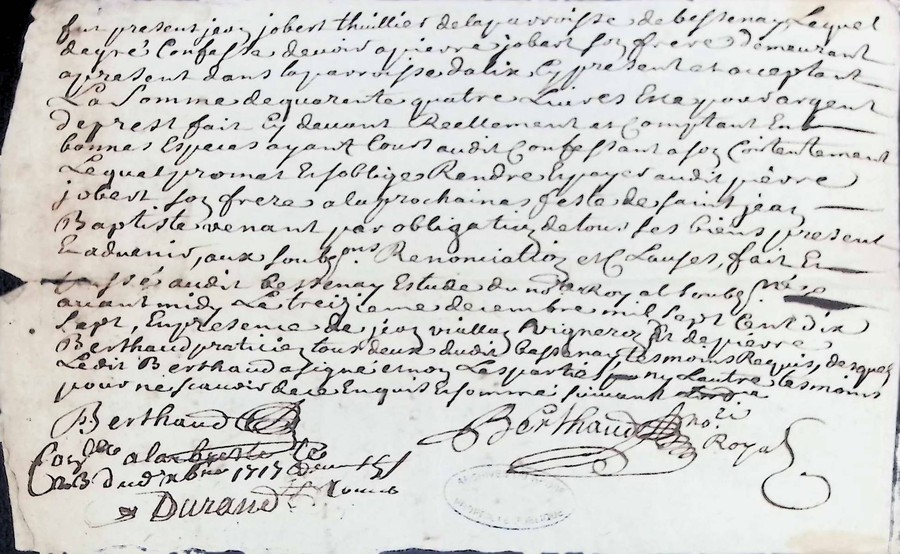 fut present jean jobert thuillier de la parroisse de bessenay Lequel
de gré Confesse devoir a pierre jobert son frere demeurant
a present dans la parroisse dalix Cy present et acceptant
La Somme de quarente quatre Livres Et ce pour argent
de prest fait Cy devant Reellement et Comptant En
bonnes Especes ayant Cours audit Confessant a son Contentement
Lequel promet Et soblige Rendre Et payer audit pierre
jobert son frere a la prochaine feste de saint jean
Baptiste venant par obligation de tous ses biens present
Et advenir, aux soub.ons Renonciation et Clauses, fait Et
passé audit bessenay Estude du no.re Royal soubz.né
avant midy Le treizieme decembre mil sept Cent dix
sept, En presence de jean viallon vigneron Et de pierre
Berthaud praticien tous deux dudit bessenay tesmoins Requis, desquels
Ledit Berthaud a signe et non Les parties ny Lautre tesmoins
pour ne scavoir de ce Enquis Et sommé suivant
Berthaud
Berthaud no.re Royal
Con.lle a la
dud x.bre 1717
Durand